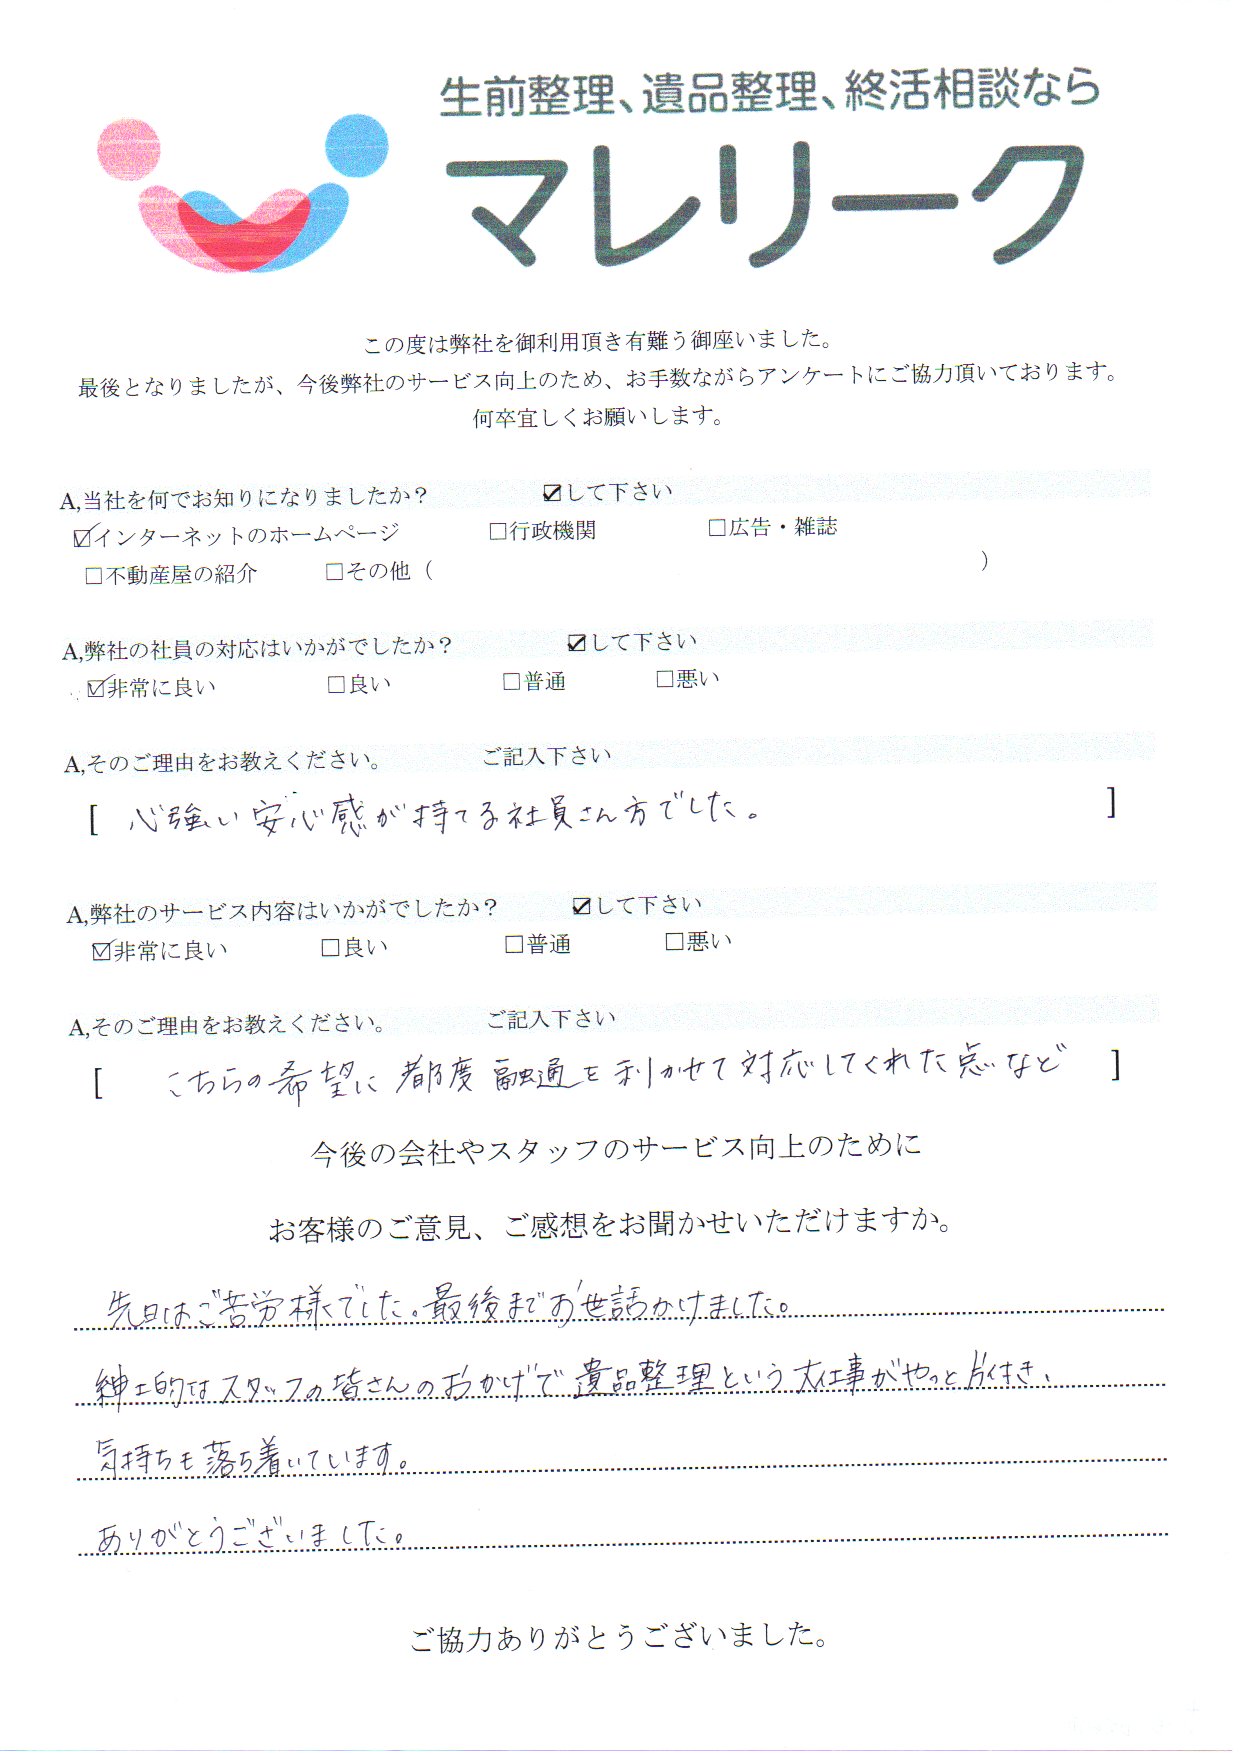 生前整理、遺品整理、終活相談なら
マレリーク
この度は弊社を御利用頂き有難う御座いました。
最後となりましたが、今後弊社のサービス向上のため、お手数ながらアンケートにご協力頂いております。
何卒宜しくお願いします。
A,当社を何でお知りになりましたか？ ☑して下さい
☑インターネットのホームページ □行政機関 □広告・雑誌
□不動産屋の紹介 □その他（ ）
A,弊社の社員の対応はいかがでしたか？ ☑して下さい
☑非常に良い □良い □普通 □悪い
A,そのご理由をお教えください。 ご記入下さい
[ 心強い安心感が持てる社員さん方でした。 ]
A,弊社のサービス内容はいかがでしたか？ ☑して下さい
☑非常に良い □良い □普通 □悪い
A,そのご理由をお教えください。 ご記入下さい
[ こちらの希望に都度融通を利かせて対応してくれた点など ]
今後の会社やスタッフのサービス向上のために
お客様のご意見、ご感想をお聞かせいただけますか。
先日はご苦労様でした。最後までお世話かけました。
紳士的なスタッフの皆さんのおかげで遺品整理という大仕事がやっと片付き、
気持ちも落ち着いています。
ありがとうございました。
ご協力ありがとうございました。